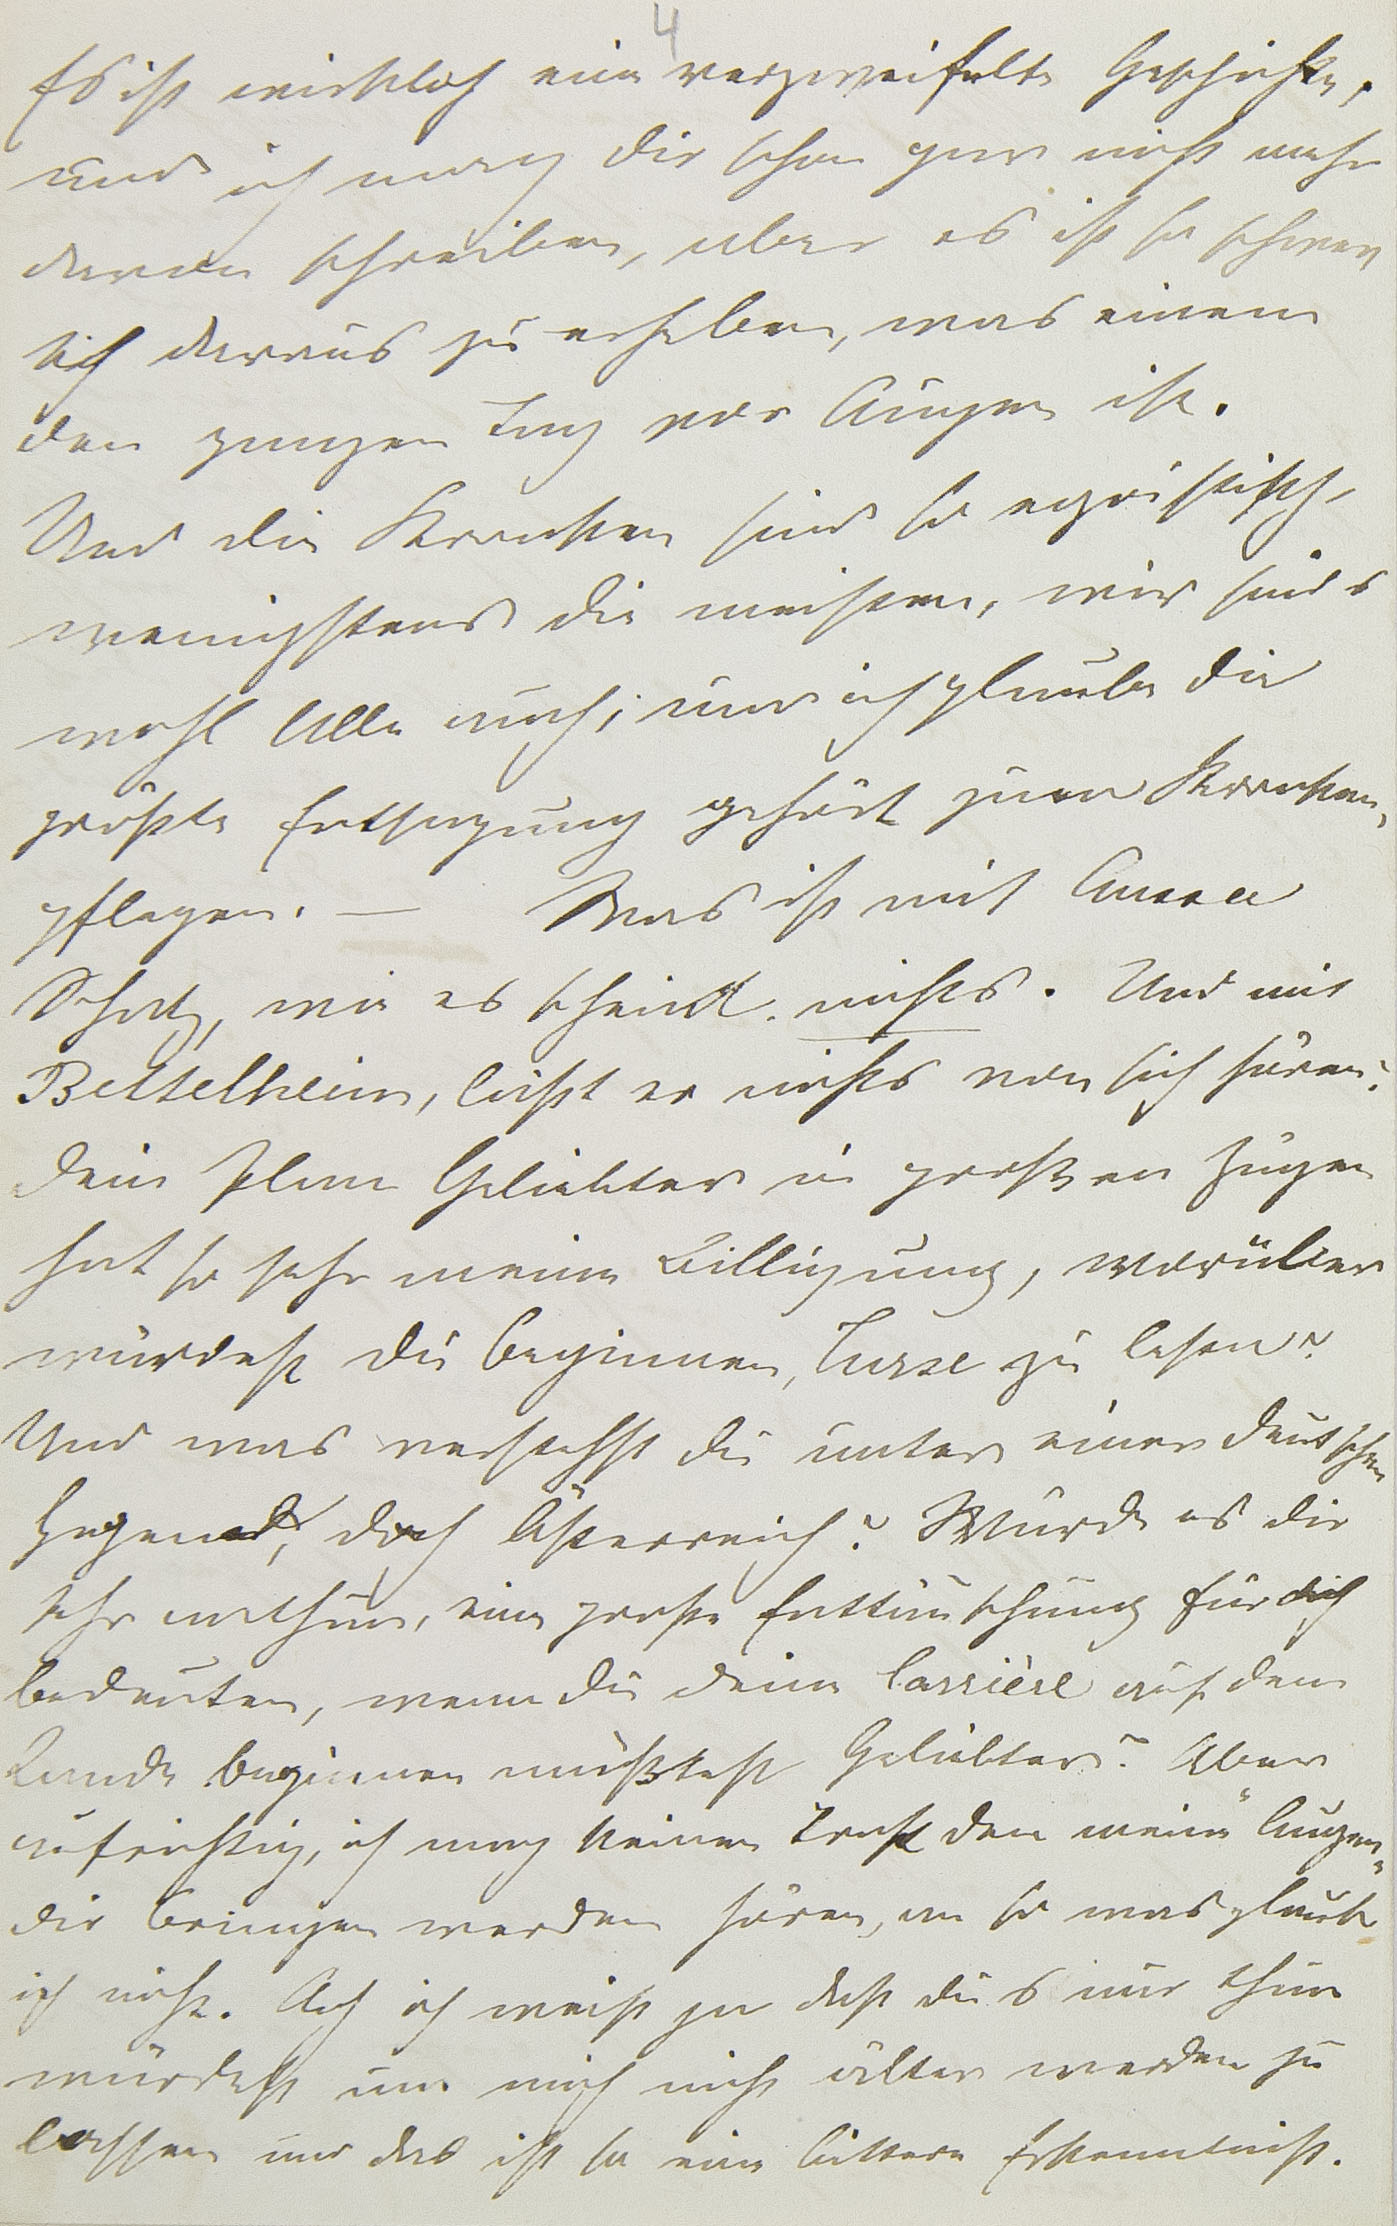 4
Es ist wirklich eine verzweifelte Geschichte,
und ich mag dir schon gar nicht mehr
davon schreiben, aber es ist so schwer
sich daraus zu erheben, was einem
den ganzen Tag vor Augen ist.
Und die Kranken sind so egoistisch,
wenigstens die meisten, wir sind's
wohl Alle auch; und ich glaube die
größte Entsagung gehört zum Kranken-
pflegen. — Was ist mit Anna
Schatz, wie es scheint nichts. Und mit
Bettelheim, läßt er nichts von sich hören?
Dein Plan Geliebter in großen Zügen
hat so sehr meine Billigung, worüber
würdest du beginnen, Curse zu lesen?
Und was verstehst du unter einer deutschen
Gegend, doch Österreich? Würde es dir
sehr wethun, eine große Enttäuschung für dich
bedeuten, wenn du deine Carrière auf dem
Lande beginnen müßtest Geliebter? Aber
aufrichtig, ich mag keinen Trost den meine "Augen"
dir bringen werden hören, an so was glaube
ich nicht. Ach ich weiß ja daß du's nur thun
würdest um mich nicht älter werden zu
lassen und das ist so eine bittere Erkenntniß.